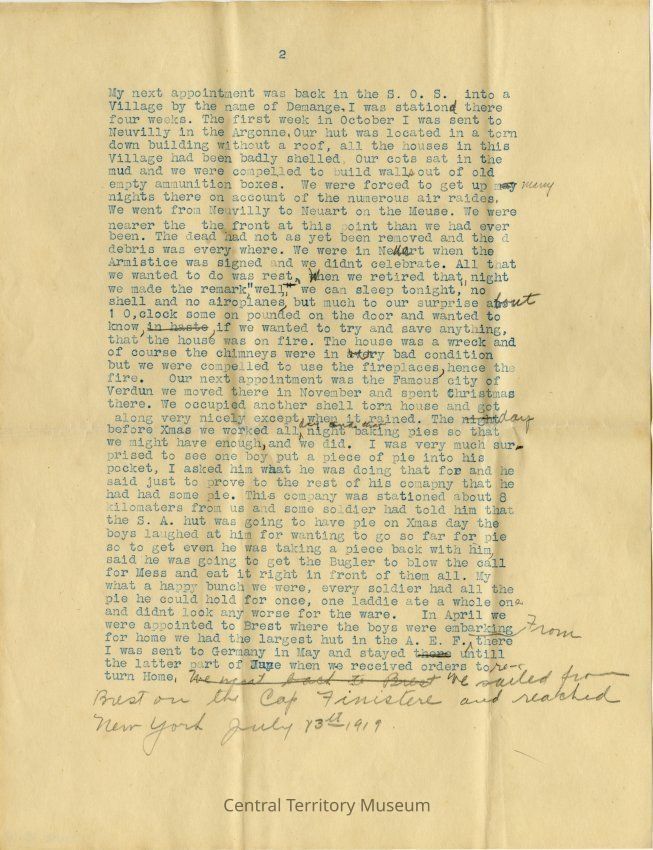 2
My next appointment was back in the S. O. S. into a
Village by the name of Demange. I was stationd there
four weeks. The first week in October I was sent to
Neuvilly in the Argonne. Our hut was located in a torn
down building without a roof, all the houses in this
Village had been badly shelled, Our cots sat in the
mud and we were compelled to build walls out of old
empty ammunition boxes. We were forced to get up may many
nights there on account of the numerous air raides.
We went from Neuvilly to Neuart on the Meuse. We were
nearer the the front at this point than we had ever
been. The dead had not as yet been removed and the d
debris was every where. We were in Neuart when the
Armistice was signed and we didnt celebrate. All that
we wanted to do was rest, When we retired that night
we made the remark, "well," we can sleep tonight, no
shell and no airoplanes, but much to our surprise about
1 0,clock some on pounded on the door and wanted to
know, in haste, if we wanted to try and save anything,
that the house was on fire. The house was a wreck and
of course the chimneys were in very bad condition
but we were compelled to use the fireplaces, hence the
fire. Our next appointment was the Famous city of
Verdun we moved there in November and spent Christmas
there. We occupied another shell torn house and got
along very nicely except, when it rained. The night day
before Xmas we worked all day and all night baking pies so that
we might have enough, and we did. I was very much sur-
prised to see one boy put a piece of pie into his
pocket, I asked him what he was doing that for and he
said just to prove to the rest of his comapny that he
had had some pie. This company was stationed about 8
kilomaters from us and some soldier had told him that
the S. A. hut was going to have pie on Xmas day the
boys laughed at him for wanting to go so far for pie
so to get even he was taking a piece back with him,
said he was going to get the Bugler to blow the call
for Mess and eat it right in front of them all. My
what a happy bunch we were, every soldier had all the
pie he could hold for once, one laddie ate a whole one
and didnt look any worse for the ware. In April we
were appointed to Brest where the boys were embarking
for home we had the largest hut in the A. E. F., there From
I was sent to Germany in May and stayed there untill
the latter part of June when we received orders to re-
turn Home, We went back to Brest We sailed from
Brest on the Cap Finistere and reached
New York July 13st 1919.
Central Territory Museum